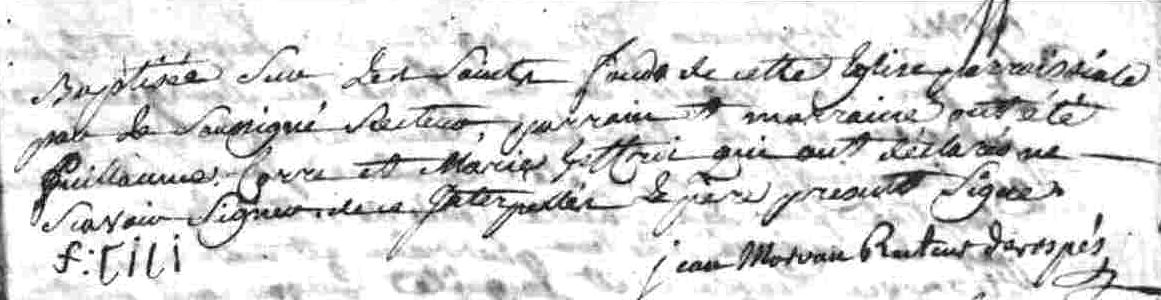 Baptisée Sur Les Saints fonds de cette Eglise parroissiale
par Le Soussigné Recteur, parrain et marraine ont été
Guillaume Corre et Marie qui ont déclaré ne
Scavoir Signer de ce Interpellés le père présent Signe
jean Morvan Recteur